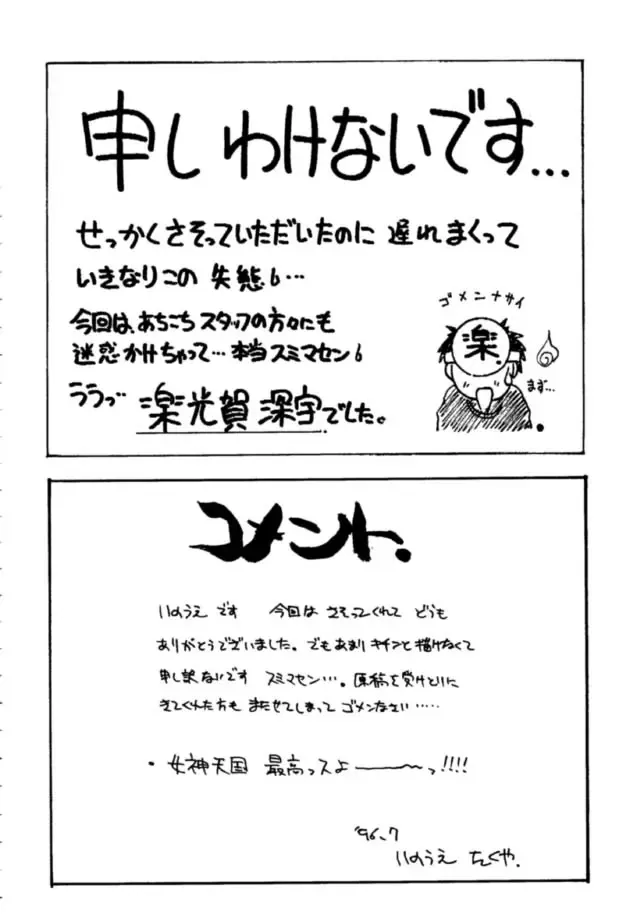 申しわけないです…
せっかくさそっていただいたのに 遅れまくって
いきなりこの 失態6…
今回は、あちこち スタッフの方々にも
迷惑かけちゃって…本当スミマセン6
ララっ 楽光賀 深宇でした。
ゴメンナサイ
楽
まず…
コメント.
いのうえ です 今回は さそってくれて どうも
ありがとうございました。でもあまり キチンと描けなくて
申し訳ないです スミマセン…。原稿を受けとりに
きてくれた方も またせてしまって ゴメンなさい……
・女神天国 最高っスよ――~っ!!!!
'96.7
いのうえ たくや.